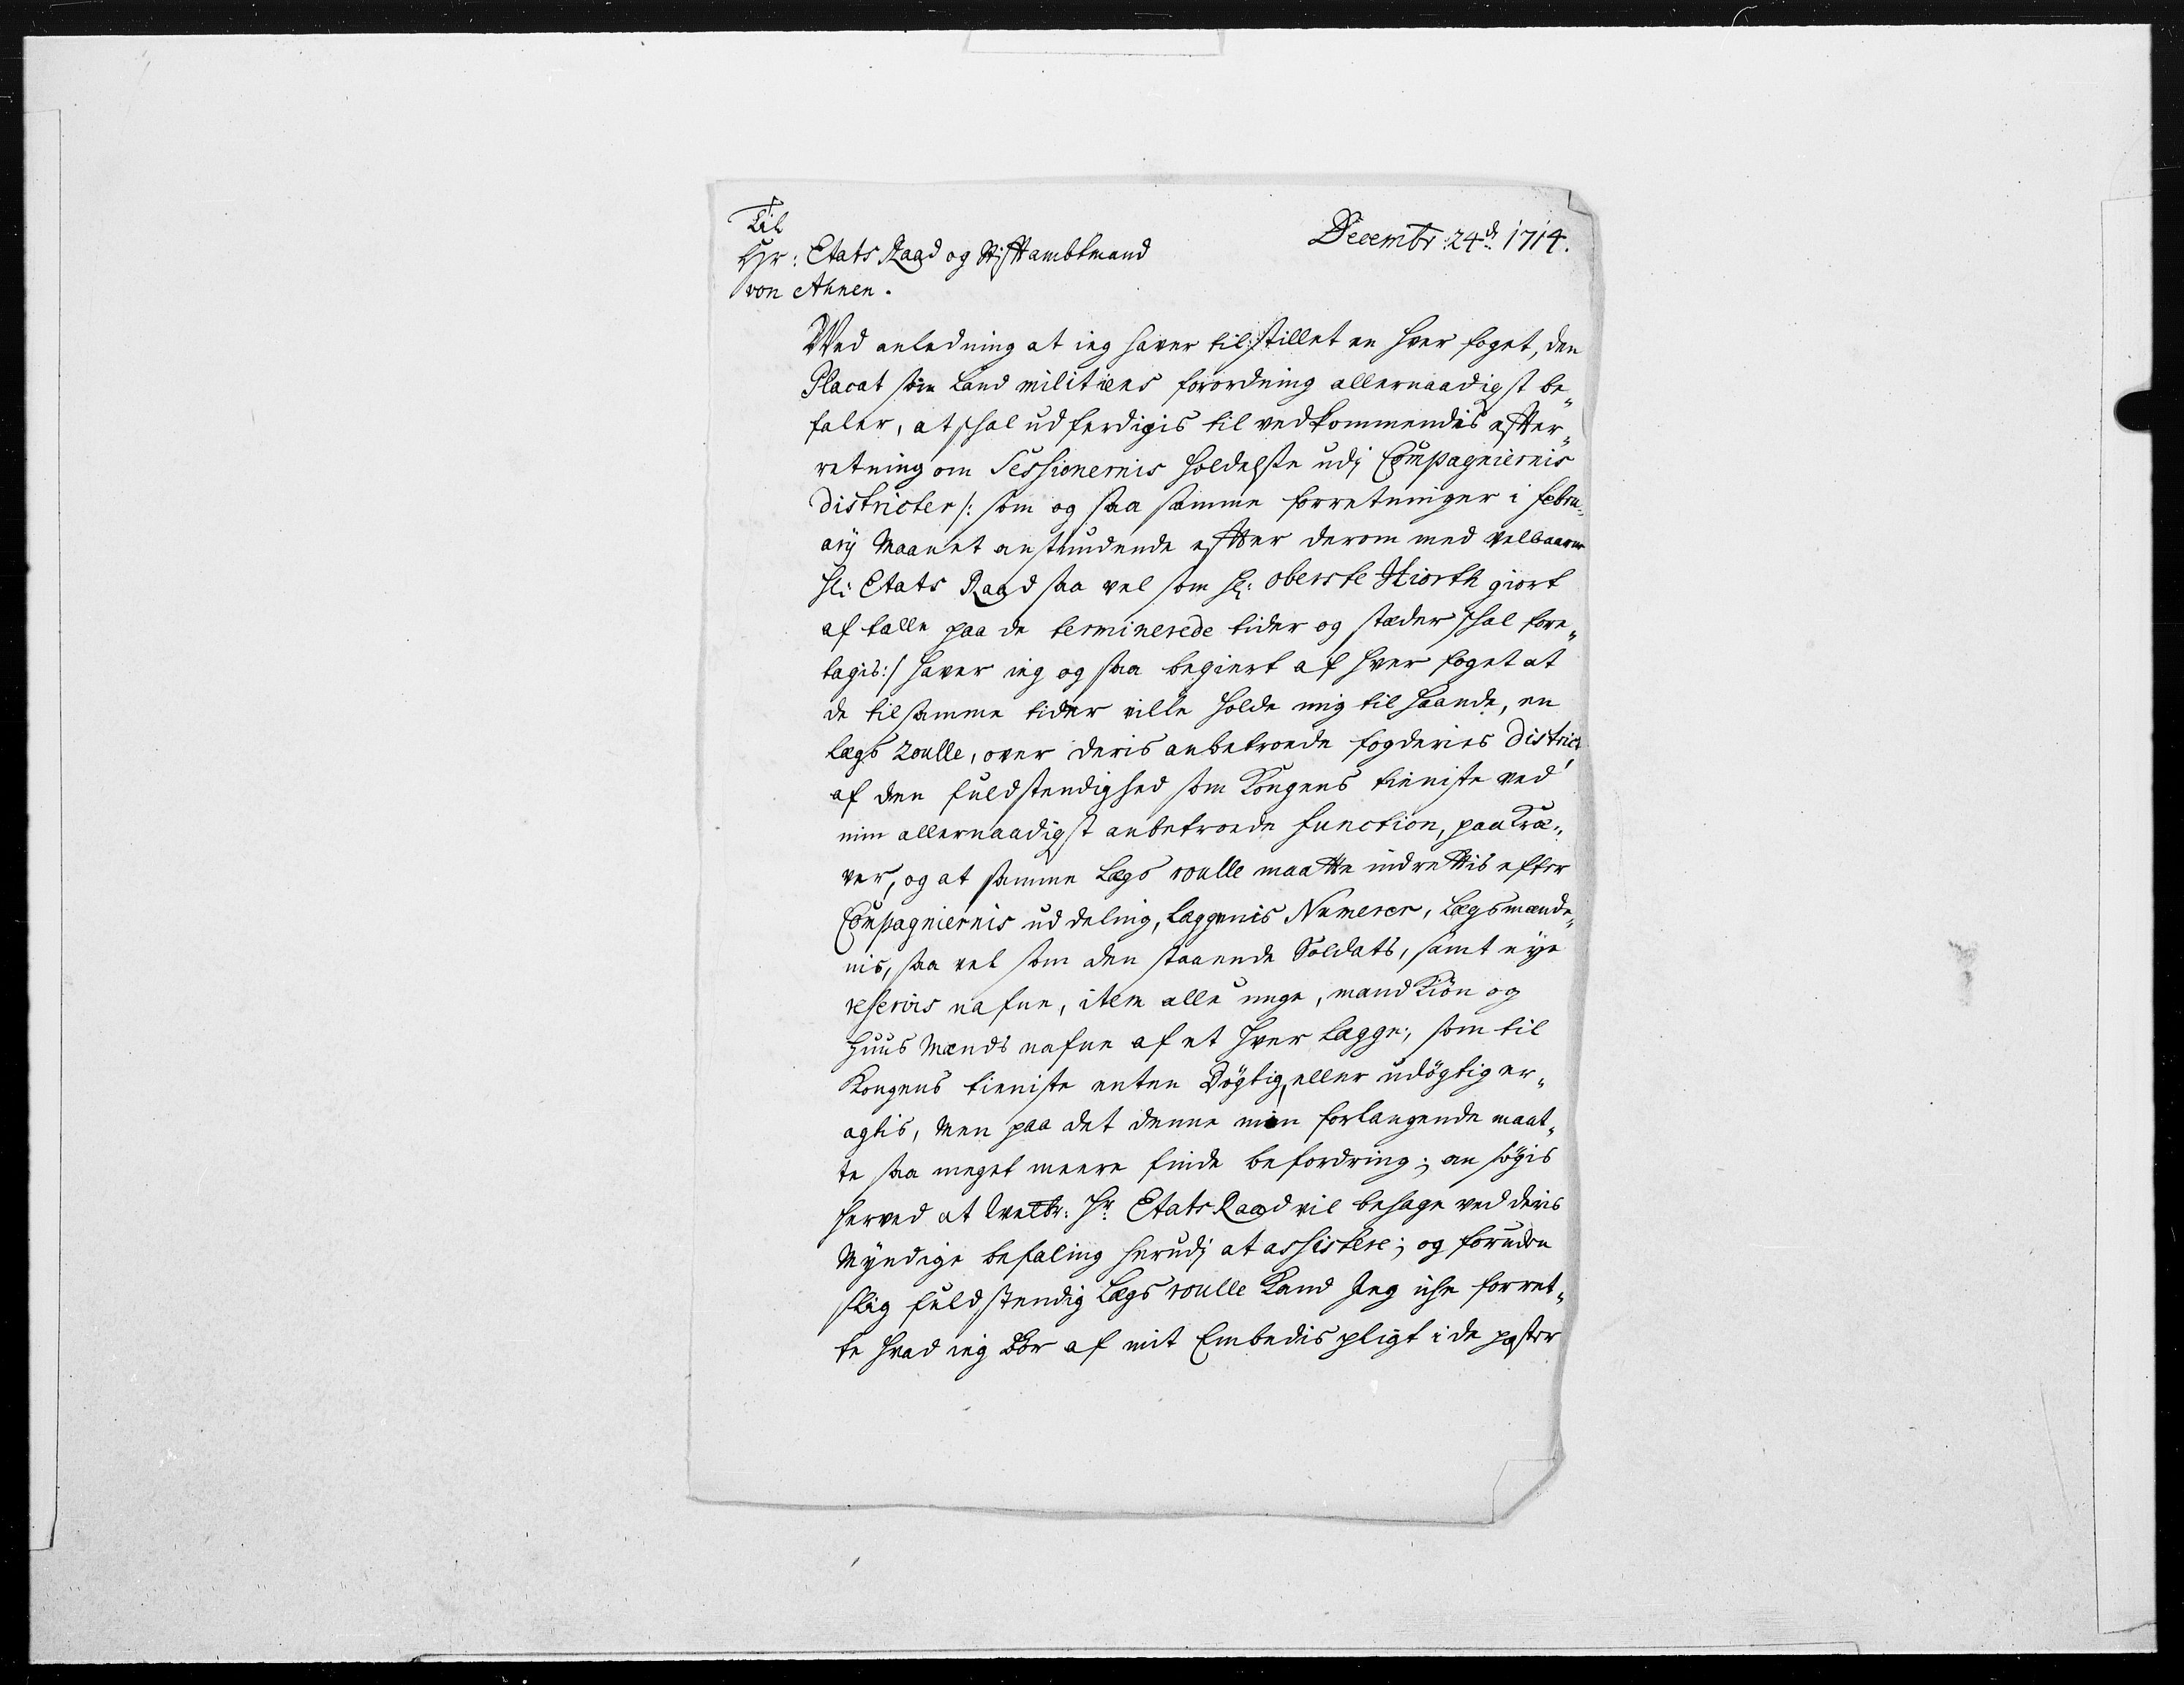 Til
Hr: Etats Raad og Stiftambtmand
von Ahnen.
Decembr: 24de 1714.
Wed anledning at ieg haver tilstillet en hver foget, den
Placat som Land militiens forordning allernaadigst be„
faler, at skal udferdigis til vedkommendis efter„
retning om Sessionernis holdelste udj Compagniernis
districter /: som og saa samme forretninger i febru„
arij Maanet anstundende efter derom med Velbaarne
Hr: Etats Raad saa vel som Hr: Oberste Hiorth giort
aftalle paa de terminerede tider og stæder skal fore„
tagis :/ haver ieg og saa begiert af hver foget at
de til samme tider ville holde mig til haande, en
Lægs Roulle, over deris anbetroede fogderies District
af den fuldstendighed som Kongens tieniste ved
min allernaadigst anbetroede function, paakræ„
ver, og at samme Lægs roulle maatte indrettis efter
Compagniernis uddeling, Læggenis Numerer, Lægsmænde„
nis, saa vel som den staaende Soldats, samt nye
reservis nafne, item alle unge, mandkiön og
Huus Mænds nafne af et hver Lægge, som til
Kongens tieniste enten Dögtig eller udögtig er„
agtis, Men paa det denne min forlangende maat„
te saa meget meere finde befordring; ansögis
herved at Velbr: Hr Etats Raad vil behage ved deris
Myndige befaling herudj at assistere; og foruden
slig fuldstendig Lægs roulle Kand Jeg iche forret„
te hvad ieg bör af mit Embedis pligt i de poster